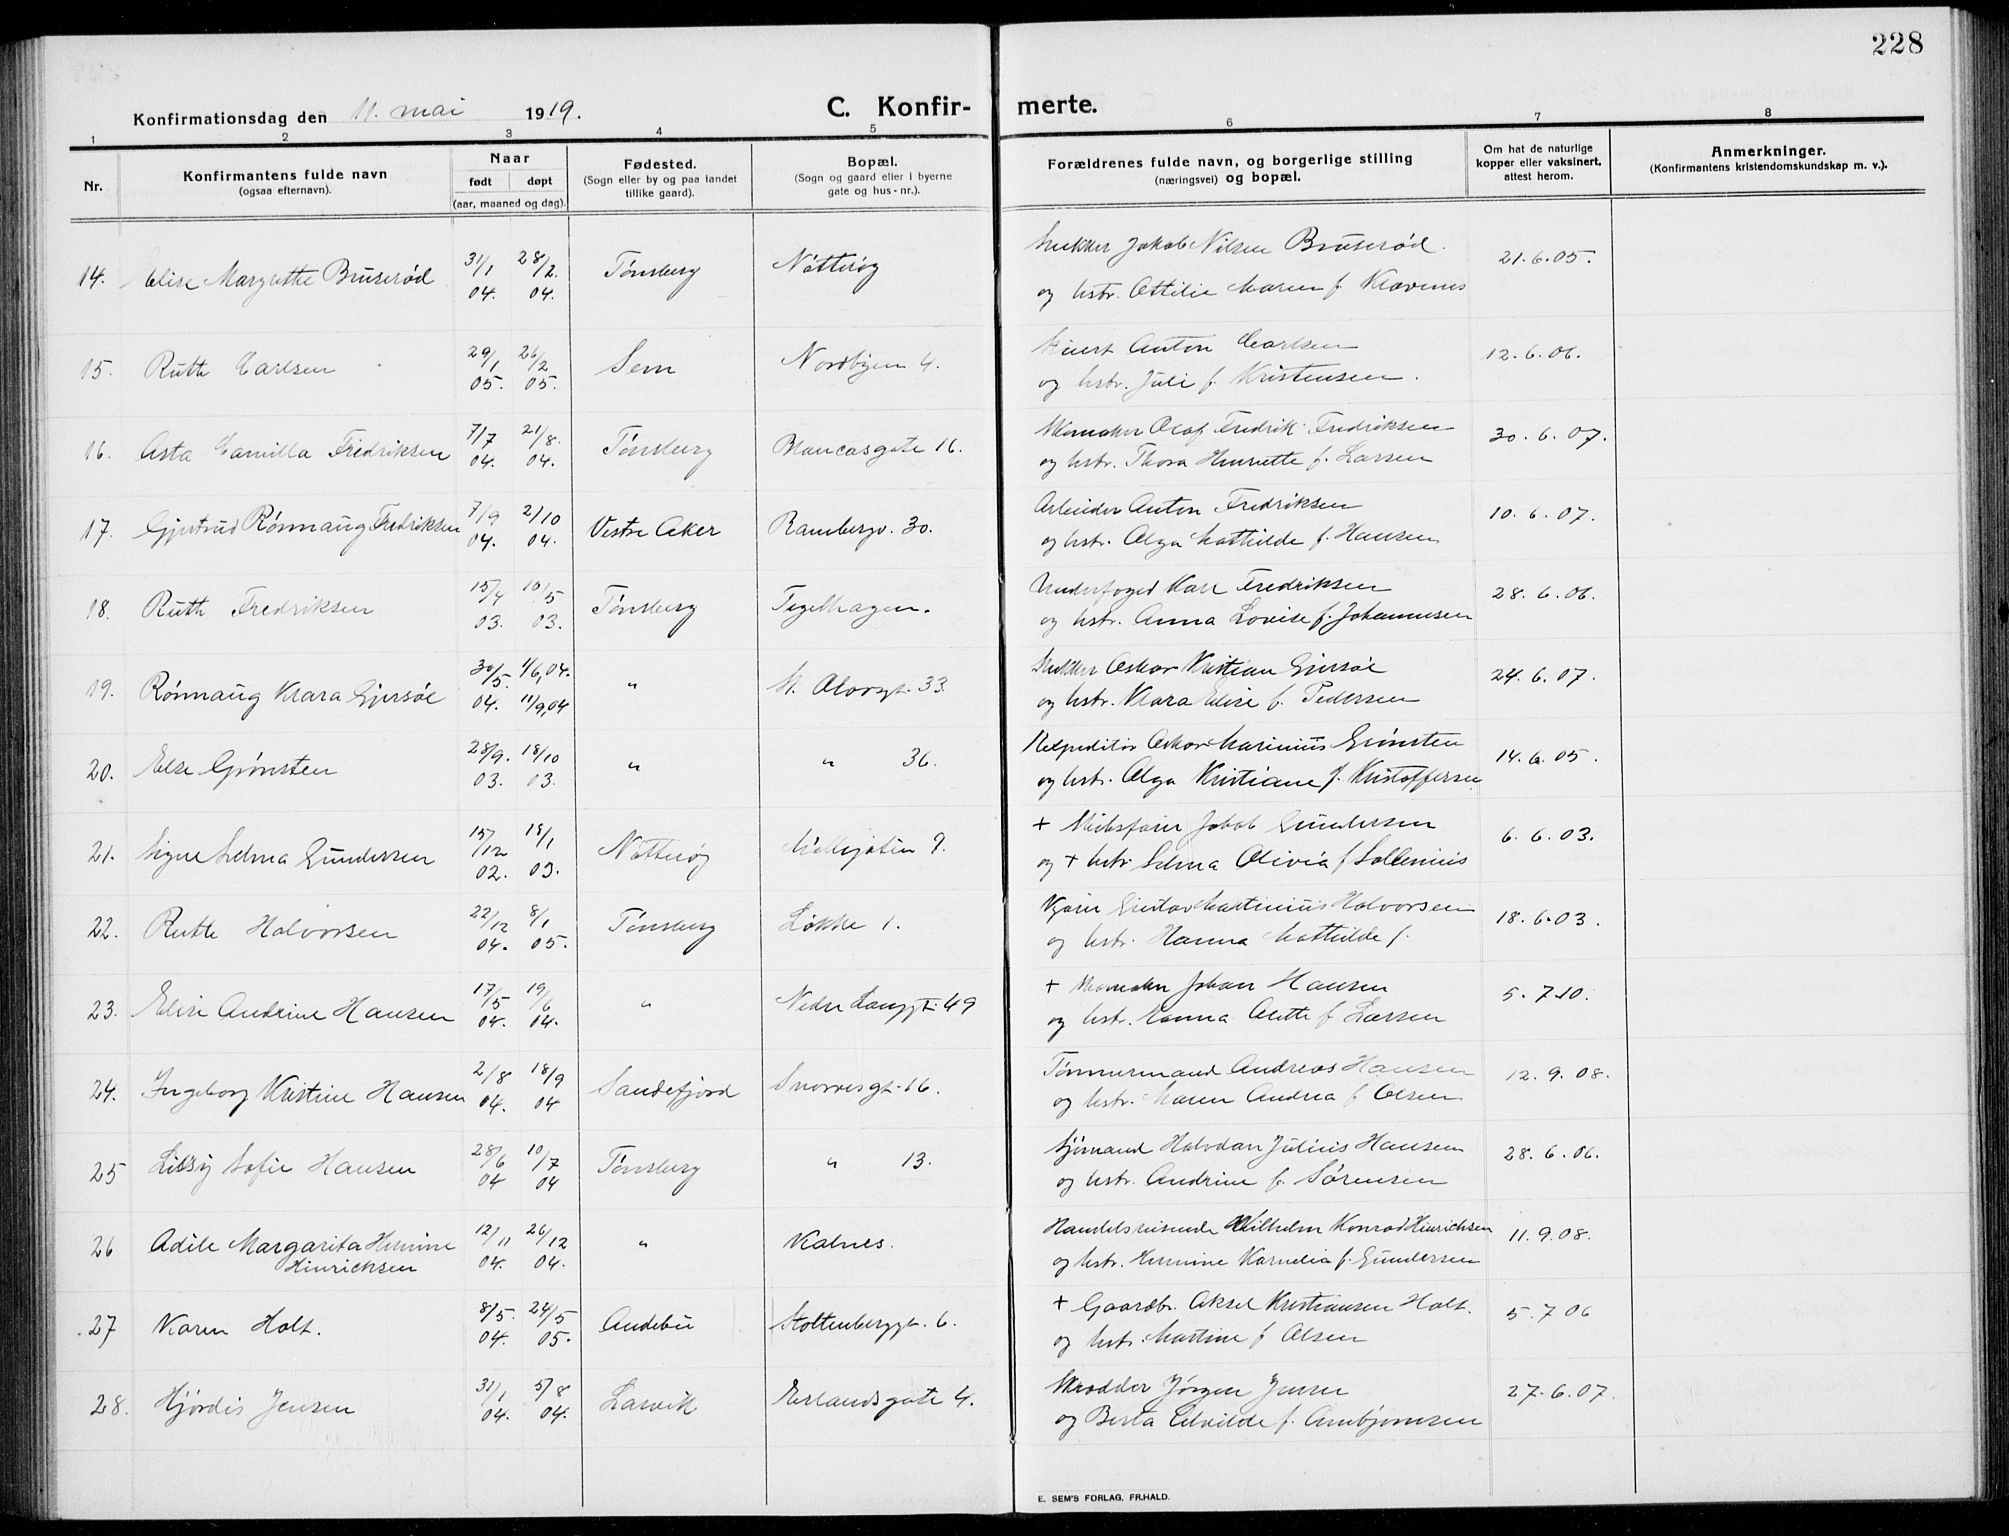 228
Konfirmationsdag den 11. mai 1919.
C. Konfir- merte.
1 2 3 4 5 6 7 8
Nr.
Konfirmantens fulde navn
(ogsaa efternavn).
Naar
født døpt
(aar, maaned og dag).
Fødested.
(Sogn eller by og paa landet
tillike gaard).
Bopæl.
(Sogn og gaard eller i byerne
gate og hus-nr.).
Forældrenes fulde navn, og borgerlige stilling
(næringsvei) og bopæl.
Om hat de naturlige
kopper eller vaksinert,
attest herom.
Anmerkninger.
(Konfirmantens kristendomskundskap m. v.).
14. Elise Margrethe Bruserød 31/1 04. 28/2. 04. Tønsberg Nøtterøy Snekker Jakob Nilsen Bruserød. 21. 6. 05.
og hstr. Ottilie Maren f. Klavenes
15. Ruth Carlsen 29/1 05. 26/2 05. Sem Nordbyen 4. Anton Carlsen 12. 6. 06.
og hstr. Juli f. Kristensen.
16. Asta Camilla Fredriksen 7/7 04. 21/8. 04. Tønsberg Blancasgate 16. Skomaker Olaf Fredrik Fredriksen 30. 6. 07.
og hstr. Thora Henriette f. Larsen
17. Gjertrud Rønnaug Fredriksen 7/9 04. 2/10 04. Vestre Aker Rambergv. 30. Arbeider Anton Fredriksen 10. 6. 07.
og hstr. Olga Mathilde f. Hansen
18. Ruth Fredriksen 15/4 03. 10/5 03. Tønsberg Teglhagen. Underfoged Karl Fredriksen 28. 6. 06.
og hstr. Anna Lovise f. Johannesen
19. Rønnaug Klara Gjersøe 30/5. 04. 1/6,04. 11/9,04 " St. Olavsgt. 33. Snekker Oskar Kristian Gjersøe 24. 6. 07.
og hstr. Klara Elise f. Pedersen
20. Else Grønsten 28/9. 03. 18/10 03. " " 36. Ekspeditør Oskar Marinius Grønsten 14. 6. 05.
og hstr. Olga Kristiane f. Kristoffersen
21. Signe Selma Gundersen 15/12 02. 18/1 03. Nøtterøy Møllegaten 9. + Skibsfører Jakob Gundersen 6. 6. 03.
og + hstr. Selma Olivia f. Sollenius
22. Ruth Halvorsen 22/12 04. 8/1 05. Tønsberg Løkke 1. Kjører Gustav Martinius Halvorsen 18. 6. 03.
og hstr. Hanna Mathilde f.
23. Elise Andrine Hansen 17/5 04. 19/6 04. " Nedre Langgt. 49 + Skomaker Johan Hansen 5. 7. 10.
og hstr. Emma Olette f. Larsen
24. Ingeborg Kristine Hansen 2/8 04. 18/9 04 Sandefjord Snorresgt. 16. Tømmermand Andreas Hansen 12. 9. 08.
og hstr. Maren Andrea f. Olsen
25 Lissy Sofie Hansen 28/6 04 10/7 04 Tønsberg " 13. Sjømand Halvdan Julius Hansen 28. 6. 06.
og hstr. Andrine f. Sørensen
26 Adile Margarita Hermine Hinrichsen 12/11 04. 26/12 04. " Kalnes. Handelsreisende Wilhelm Konrad Hinrichsen 11. 9. 08.
og hstr. Hermine Kornelia f. Gundersen
27 Karen Holt. 8/5. 04. 24/5 05. Andebu Stoltenberggt. 6. + Gaardbr. Aksel Kristiansen Holt. 5. 7 06
og hstr. Martine f. Olsen
28. Hjørdis Jensen 31/1 04. 5/8 04. Larvik Erlandsgate 4. Skrædder Jørgen Jensen 27. 6. 07.
og Berta Elvilde f. Arnbjørnsen
E. SEM'S FORLAG, FR.HALD.